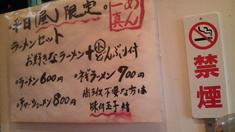 平日(昼)限定。
らーめん
真ん
ラーメンセット
お好きなラーメン+小どんぶり付
・ラーメン600円
・ネギラーメン700円
・チャーシューメン800円
御飯不要な方は
味付玉子付
禁煙